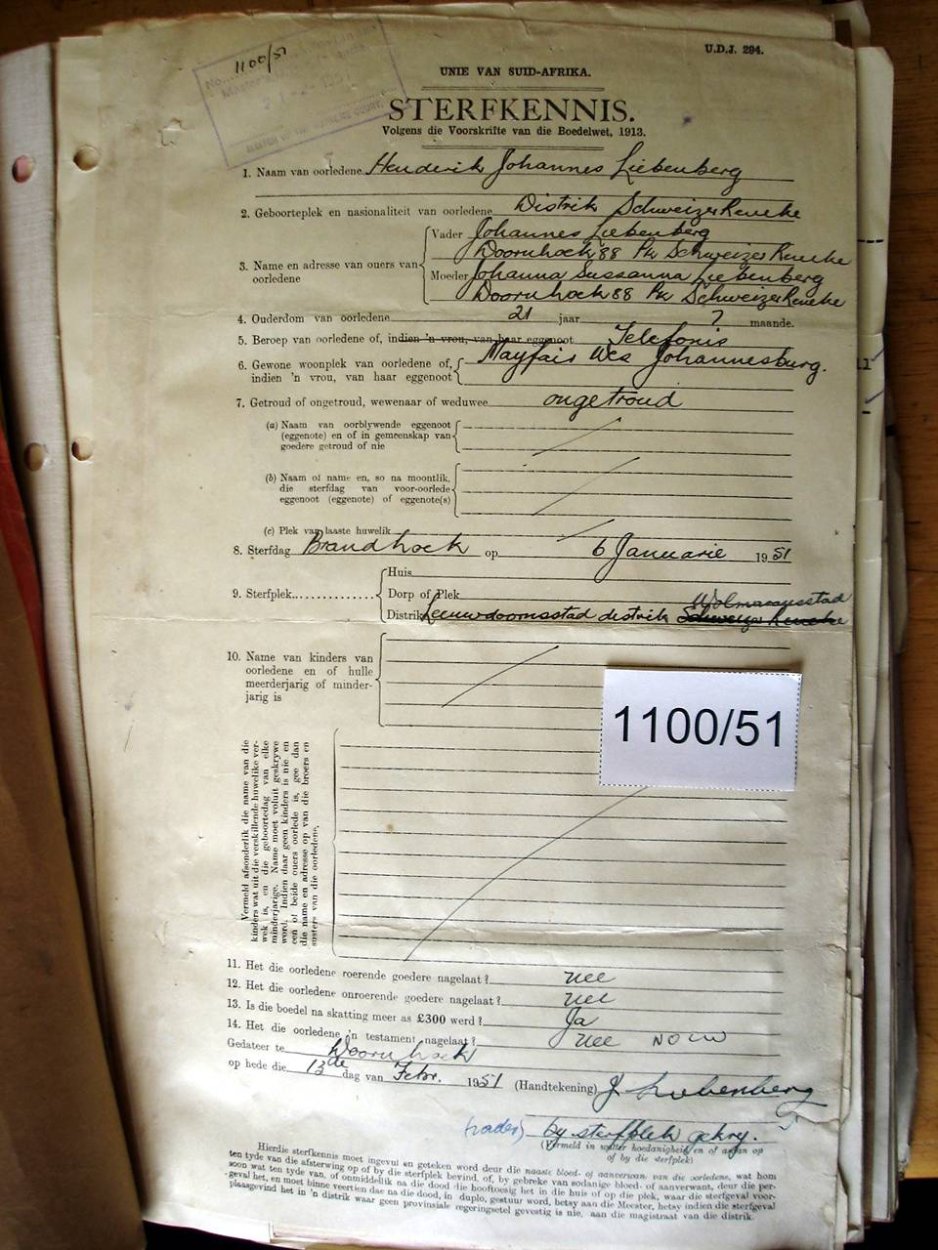 1100/51
U.D.J. 294.
UNIE VAN SUID-AFRIKA.
STERFKENNIS.
Volgens die Voorskrifte van die Boedelwet, 1913.
1. Naam van oorledene Henderik Johannes Liebenberg
2. Geboorteplek en nasionaliteit van oorledene Distrik Schweizer Reneke
3. Name en adresse van ouers van oorledene
Vader Johannes Liebenberg
Doornhoek 88 Pk Schweizer Reneke
Moeder Johanna Sussanna Liebenberg
Doornhoek 88 Pk Schweizer Reneke
4. Ouderdom van oorledene 21 jaar 7 maande.
5. Beroep van oorledene of, indien 'n vrou, van haar eggenoot Telefonis
6. Gewone woonplek van oorledene of, Mayfair Wes Johannesburg.
indien 'n vrou, van haar eggenoot
7. Getroud of ongetroud, wewenaar of weduwee ongetroud
(a) Naam van oorblywende eggenoot
(eggenote) en of in gemeenskap van
goedere getroud of nie
(b) Naam of name en, so na moontlik,
die sterfdag van voor-oorlede
eggenoot (eggenote) of eggenote(s)
(c) Plek van laaste huwelik
8. Sterfdag Brandhoek op 6 Januarie 1951
9. Sterfplek
Huis
Dorp of Plek Wolmaransstad
Distrik Leeuwdoornsstad distrik Schweizer Reneke
10. Name van kinders van
oorledene en of hulle
meerderjarig of minder-
jarig is
1100/51
Vermeld afsonderlik die name van die
kinders wat uit die verskillende huwelike ver-
wek is, en die geboortedag van elke
minderjarige. Name moet voluit geskrywe
word. Indien daar geen kinders is nie en
een of beide ouers oorlede is, gee dan
die name en adresse op van die broers en
susters van die oorledene.
11. Het die oorledene roerende goedere nagelaat? nee
12. Het die oorledene onroerende goedere nagelaat? nee
13. Is die boedel na skatting meer as £300 werd? Ja
14. Het die oorledene 'n testament nagelaat? nee
Gedateer te Doornhoek
op hede die 13de dag van Febr. 1951 (Handtekening) J Liebenberg
(vader) by sterfplek
(Vermeld in watter hoedanigheid en of aanwesig op
of by die sterfplek)
Hierdie sterfkennis moet ingevul en geteken word deur die naaste bloed- of aanverwant van die oorledene, wat hom
ten tyde van die afsterwing op of by die sterfplek bevind, of, by gebreke van sodanige bloed- of aanverwant, deur die per-
soon wat ten tyde van, of onmiddellik na die dood die hooftoesig het in die huis of op die plek, waar die sterfgeval voor-
geval het, en moet binne veertien dae na die dood, in duplo, gestuur word, hetsy aan die Meester, hetsy indien die sterfgeval
plaasgevind het in 'n distrik waar geen provinsiale regeringsetel gevestig is nie, aan die magistraat van die distrik.